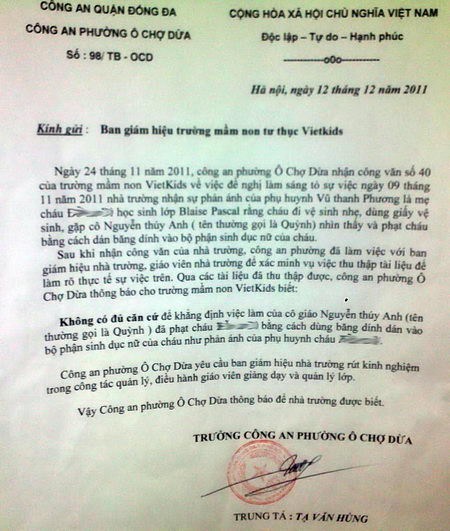 CÔNG AN QUẬN ĐỐNG ĐA
CÔNG AN PHƯỜNG Ô CHỢ DỪA
Số : 98/ TB - OCD
CỘNG HÒA XÃ HỘI CHỦ NGHĨA VIỆT NAM
Độc lập – Tự do – Hạnh phúc
------------o0o------------
Hà nội, ngày 12 tháng 12 năm 2011
Kính gửi : Ban giám hiệu trường mầm non tư thục Vietkids
Ngày 24 tháng 11 năm 2011, công an phường Ô Chợ Dừa nhận công văn số 40
của trường mầm non VietKids về việc đề nghị làm sáng tỏ sự việc ngày 09 tháng
11 năm 2011 nhà trường nhận sự phản ánh của phụ huynh Vũ thanh Phương là mẹ
cháu học sinh lớp Blaise Pascal rằng cháu đi vệ sinh nhẹ, dùng giấy vệ
sinh, gặp cô Nguyễn thúy Anh ( tên thường gọi là Quỳnh) nhìn thấy và phạt cháu
bằng cách dán băng dính vào bộ phận sinh dục nữ của cháu.
Sau khi nhận công văn của nhà trường, công an phường đã làm việc với ban
giám hiệu nhà trường, giáo viên nhà trường để xác minh vụ việc thu thập tài liệu để
làm rõ thực tế sự việc trên. Qua các tài liệu đã thu thập được, công an phường Ô
Chợ Dừa thông báo cho trường mầm non VietKids biết:
Không có đủ căn cứ để khẳng định việc làm của cô giáo Nguyễn thúy Anh (tên
thường gọi là Quỳnh ) đã phạt cháu bằng cách dùng băng dính dán vào
bộ phận sinh dục nữ của cháu như phản ánh của phụ huynh cháu
Công an phường Ô Chợ Dừa yêu cầu ban giám hiệu nhà trường rút kinh nghiệm
trong công tác quản lý, điều hành giáo viên giảng dạy và quản lý lớp.
Vậy Công an phường Ô Chợ Dừa thông báo để nhà trường được biết.
TRƯỞNG CÔNG AN PHƯỜNG Ô CHỢ DỪA
TRUNG TÁ : TẠ VĂN HÙNG